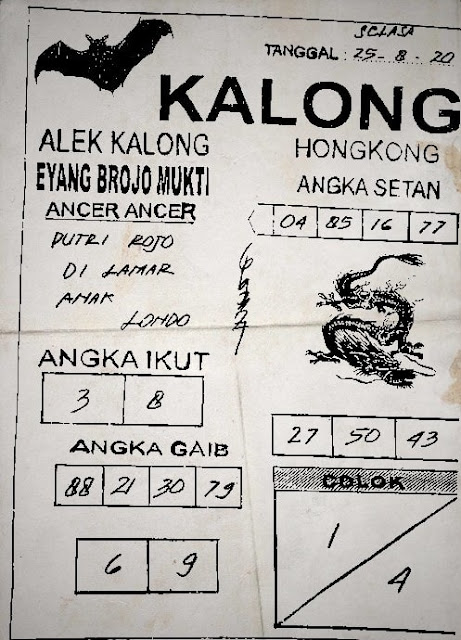 SELASA
TANGGAL : 25 - 8 - 20
KALONG
ALEK KALONG
EYANG BROJO MUKTI
ANCER ANCER
PUTRI ROJO
DI LAMAR
ANAK
LONDO
HONGKONG
ANGKA SETAN
04 85 16 77
ANGKA IKUT
3 8
27 50 43
ANGKA GAIB
88 21 30 79
6 9
COLOK
1
4